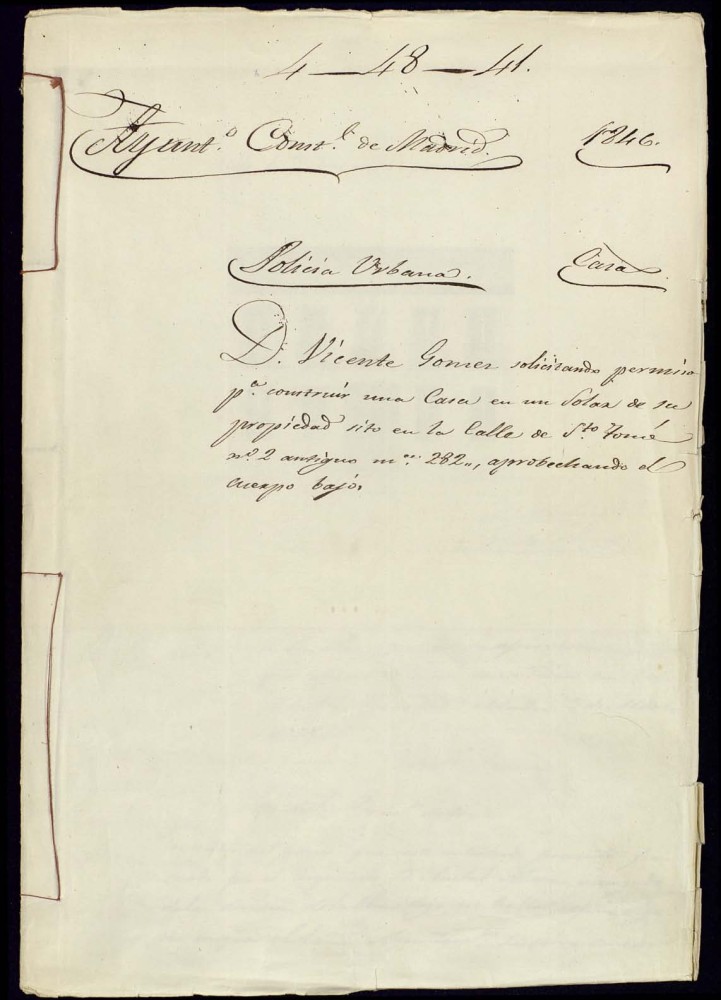 4 — 48 — 41.
Ayunt.º Const.l de Madrid. 1846.
Policia Urbana. Casa
D. Vicente Gomez solicitando permiso
p.ª construir una Casa en un Solar de su
propiedad sito en la Calle de S.to Tomé
n.º 2 antiguo m.na 282,, aprobechando el
cuerpo bajo.